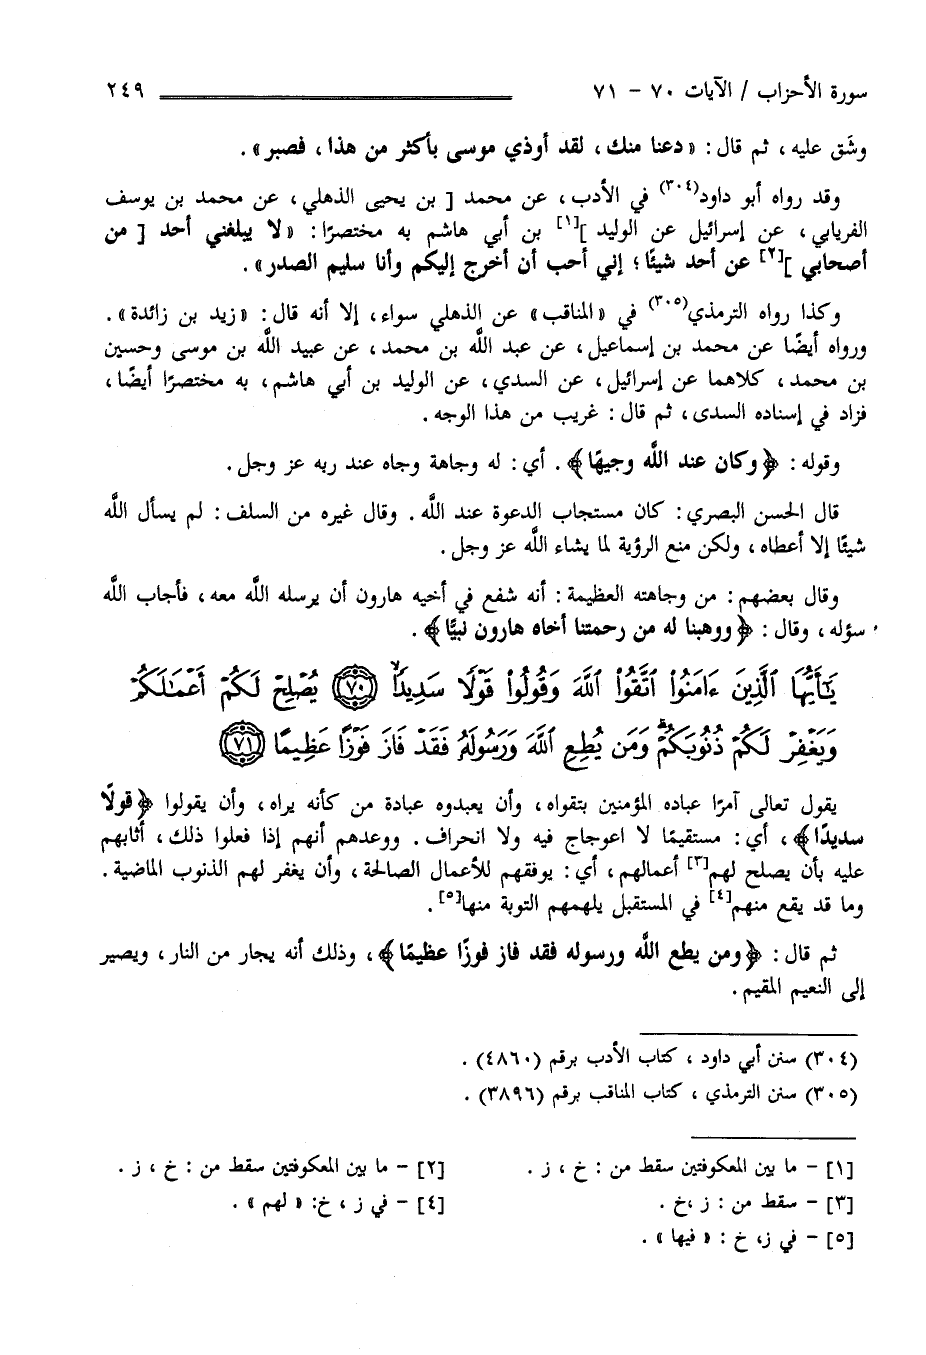 سورة الأحزاب / الآيات ٧٠ - ٧١ ٢٤٩
وشَق عليه ، ثم قال : « دعنا منك ، لقد أوذي موسى بأكثر من هذا ، فصبر » .
وقد رواه أبو داود(٣٠٤) في الأدب ، عن محمد [ بن يحيى الذهلي ، عن محمد بن يوسف
الفريابي ، عن إسرائيل عن الوليد ][١] بن أبي هاشم به مختصرًا : « لا يبلغني أحد [ من
أصحابي ][٢] عن أحد شيئًا ؛ إني أحب أن أخرج إليكم وأنا سليم الصدر » .
وكذا رواه الترمذي(٣٠٥) في « المناقب » عن الذهلي سواء ، إلا أنه قال : « زيد بن زائدة » .
ورواه أيضًا عن محمد بن إسماعيل ، عن عبد الله بن محمد ، عن عبيد الله بن موسى وحسين
بن محمد ، كلاهما عن إسرائيل ، عن السدي ، عن الوليد بن أبي هاشم ، به مختصرًا أيضًا ،
فزاد في إسناده السدى ، ثم قال : غريب من هذا الوجه .
وقوله : ﴿ وكان عند الله وجيهًا ﴾ . أي : له وجاهة وجاه عند ربه عز وجل .
قال الحسن البصري : كان مستجاب الدعوة عند الله . وقال غيره من السلف : لم يسأل الله
شيئًا إلا أعطاه ، ولكن منع الرؤية لما يشاء الله عز وجل .
وقال بعضهم : من وجاهته العظيمة : أنه شفع في أخيه هارون أن يرسله الله معه ، فأجاب الله
سؤله ، وقال : ﴿ ووهبنا له من رحمتنا أخاه هارون نبيًّا ﴾ .
يَٰٓأَيُّهَا ٱلَّذِينَ ءَامَنُوا۟ ٱتَّقُوا۟ ٱللَّهَ وَقُولُوا۟ قَوْلًا سَدِيدًا ﴿٧٠﴾ يُصْلِحْ لَكُمْ أَعْمَٰلَكُمْ
وَيَغْفِرْ لَكُمْ ذُنُوبَكُمْ ۗ وَمَن يُطِعِ ٱللَّهَ وَرَسُولَهُۥ فَقَدْ فَازَ فَوْزًا عَظِيمًا ﴿٧١﴾
يقول تعالى آمرًا عباده المؤمنين بتقواه ، وأن يعبدوه عبادة من كأنه يراه ، وأن يقولوا ﴿ قولًا
سديدًا ﴾ ، أي : مستقيمًا لا اعوجاج فيه ولا انحراف . ووعدهم أنهم إذا فعلوا ذلك ، أثابهم
عليه بأن يصلح لهم[٣] أعمالهم ، أي : يوفقهم للأعمال الصالحة ، وأن يغفر لهم الذنوب الماضية .
وما قد يقع منهم[٤] في المستقبل يلهمهم التوبة منها[٥] .
ثم قال : ﴿ ومن يطع الله ورسوله فقد فاز فوزًا عظيمًا ﴾ ، وذلك أنه يجار من النار ، ويصير
إلى النعيم المقيم .
(٣٠٤) سنن أبي داود ، كتاب الأدب برقم (٤٨٦٠) .
(٣٠٥) سنن الترمذي ، كتاب المناقب برقم (٣٨٩٦) .
[١] - ما بين المعكوفتين سقط من : خ ، ز . [٢] - ما بين المعكوفتين سقط من : خ ، ز .
[٣] - سقط من : ز ،خ . [٤] - في ز ، خ: « لهم » .
[٥] - في ز، خ : « فيها » .